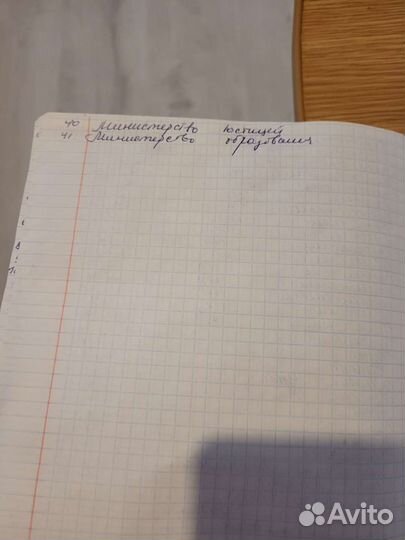 40 Министерство юстиций
41 Министерство образования
Avito